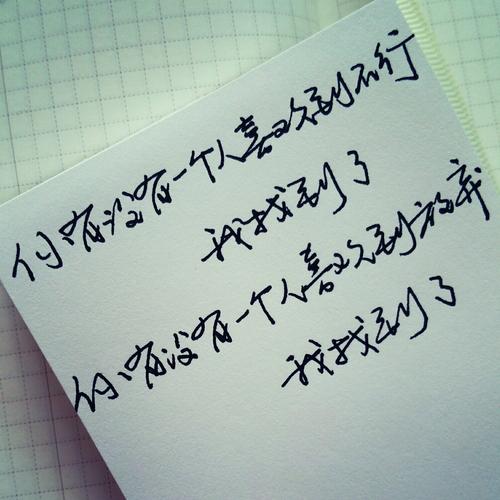 你有没有一个人喜欢到不行
我找到了
你有没有一个人喜欢到放弃
我找到了